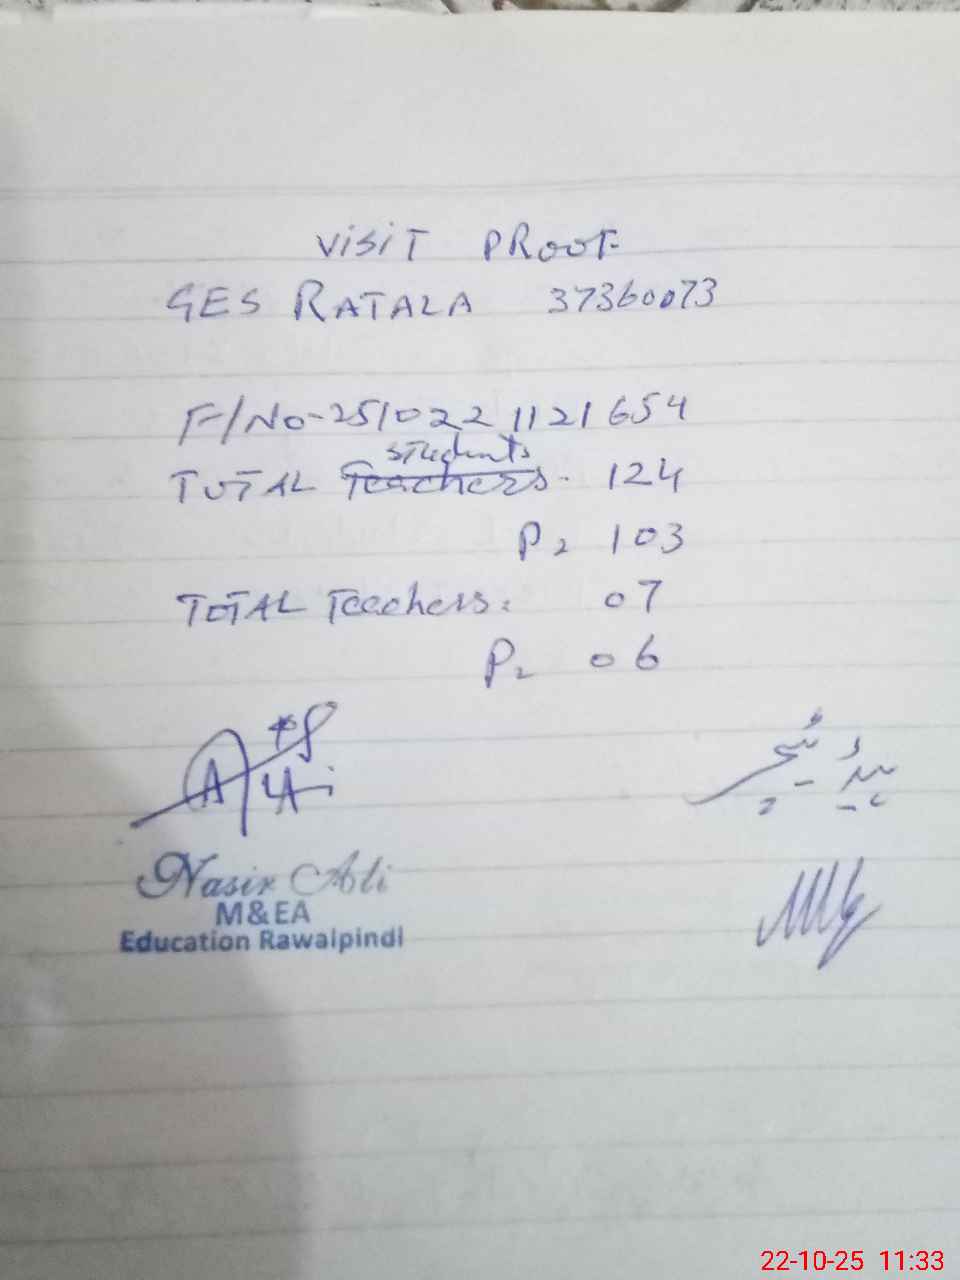 VISIT PROOF
GES RATALA 37360073
F/No-251022 1121654
students
TOTAL Teachers. 124
P2 103
TOTAL Teachers: 07
P2 06
ہیڈ ٹیچر
Nasir Ali
M&EA
Education Rawalpindi
22-10-25 11:33